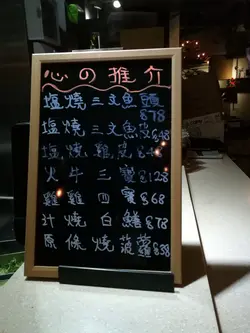 心の推介
塩燒三文魚頭 $78
塩燒三文魚皮 $48
塩燒雞皮
火牛三寶 $128
雞雞四寶 $68
汁燒白鱔 $78
原條燒菠蘿 $38